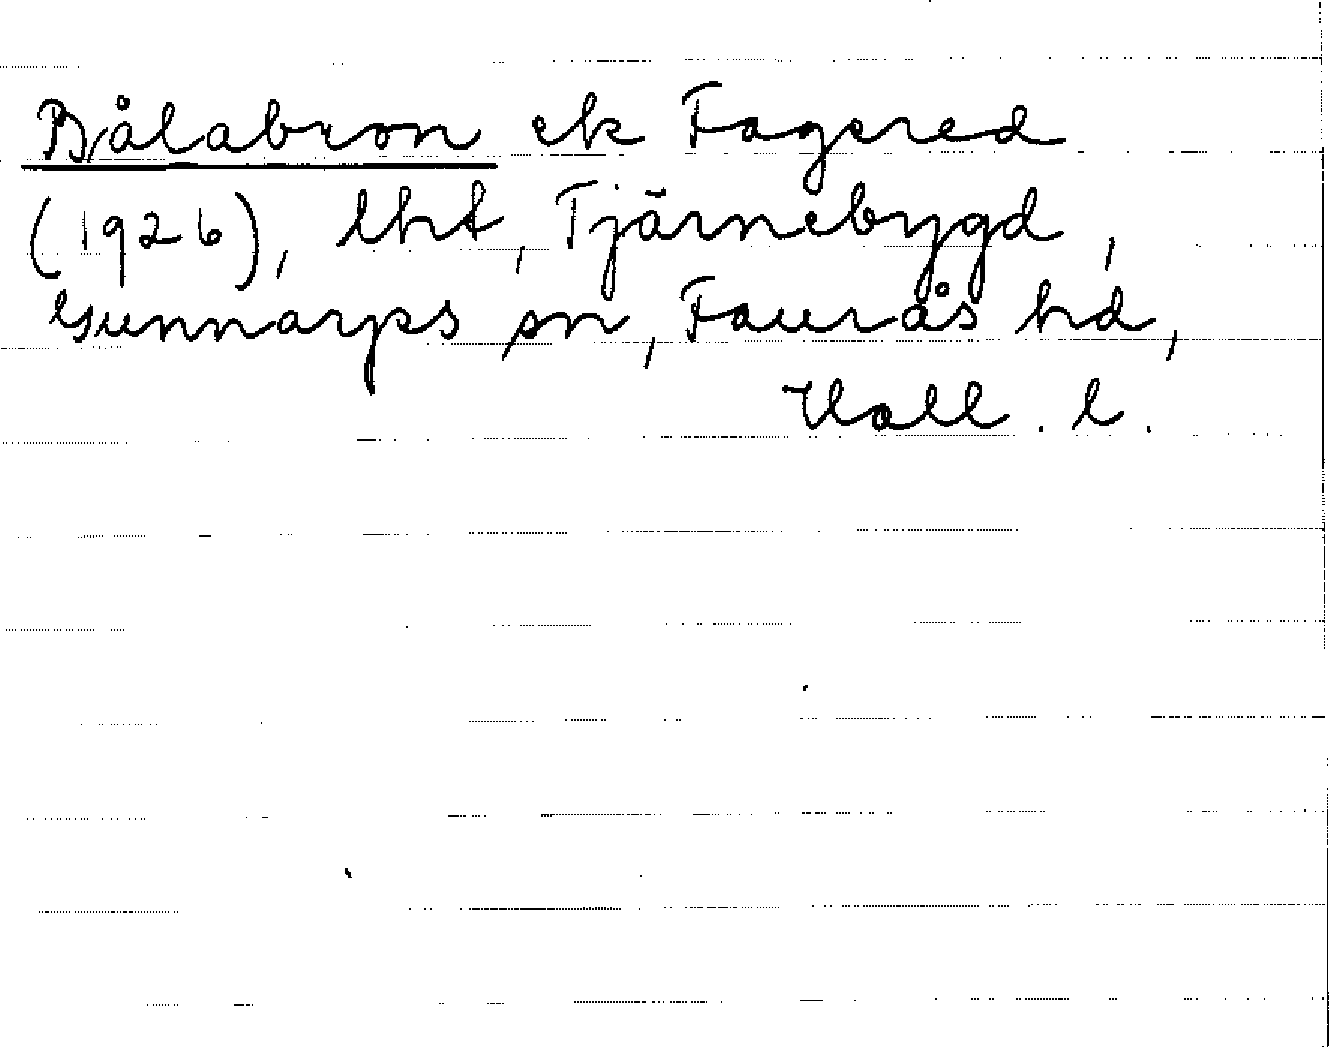 Bålabron ek Fagered
(1926), lht, Tjärnebygd,
Gunnarps sn, Faurås hd,
Hall. l.